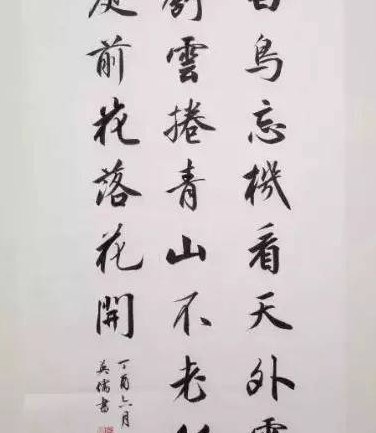 白鳥忘機看天外雲
雲捲青山不老
庭前花落花開
丁酉六月
英儒書